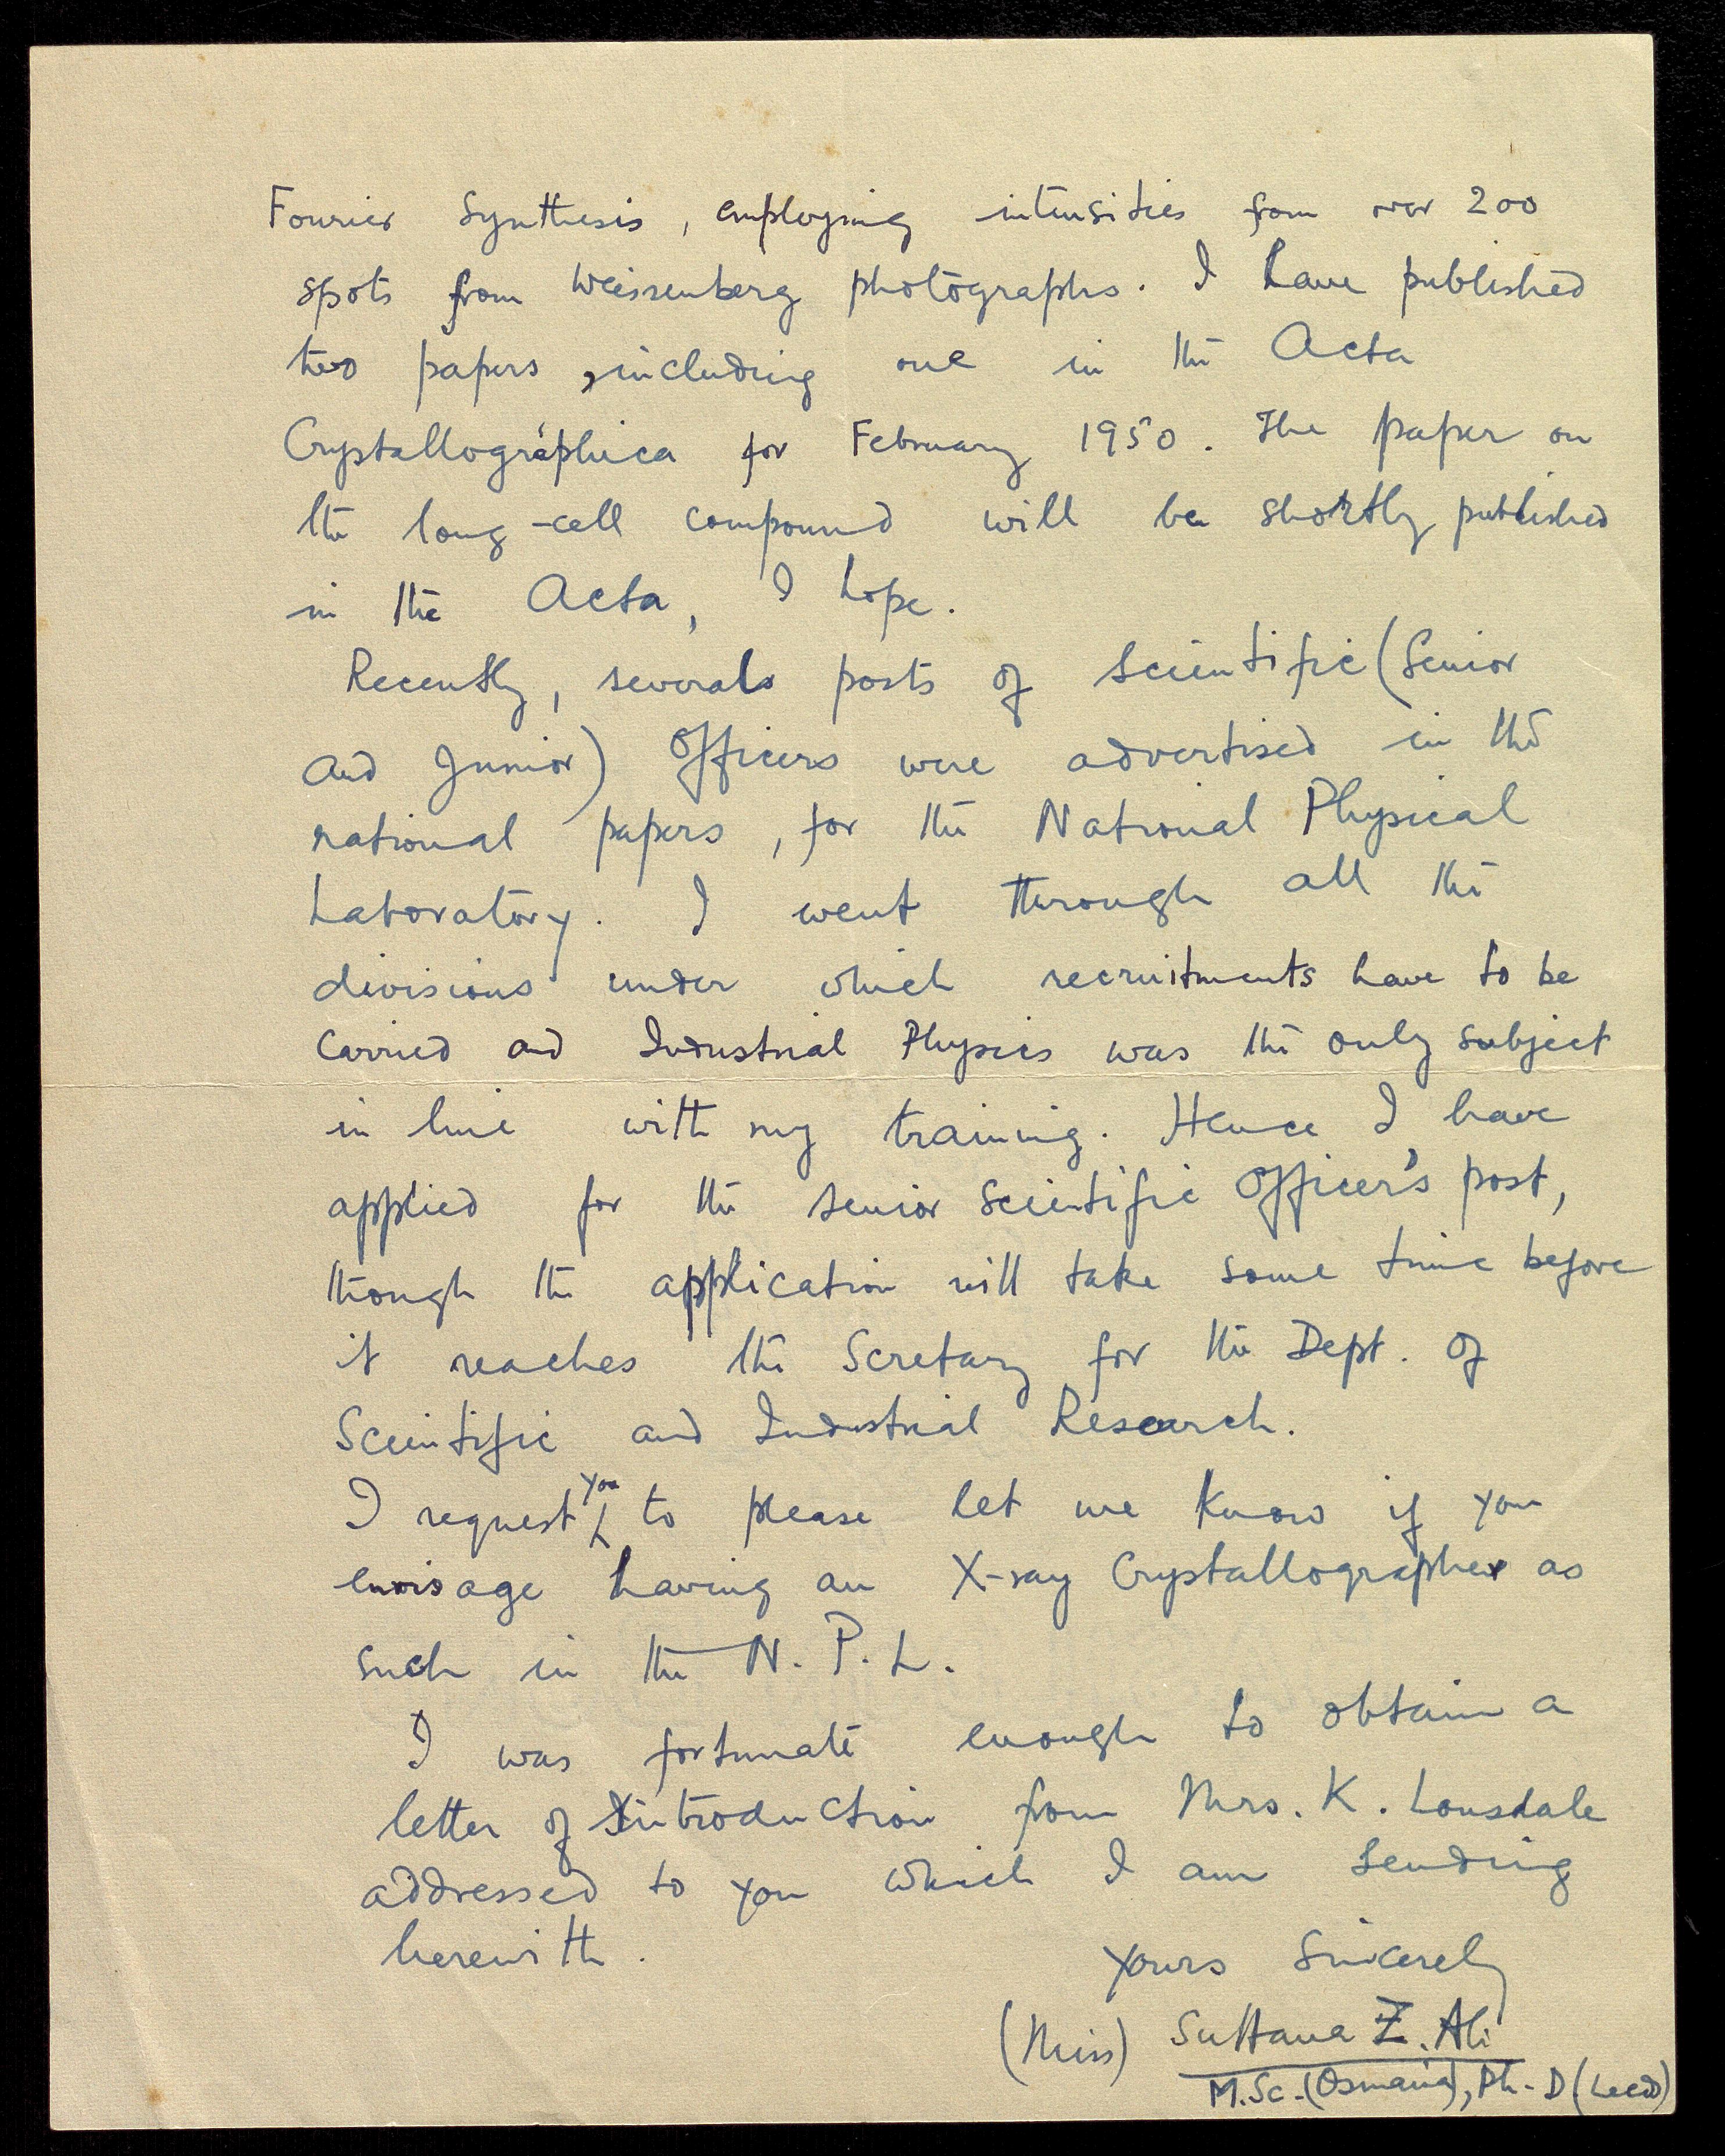 Fourier Synthesis, employing intensities from over 200
spots from Weissenberg photographs. I have published
two papers, including one in the Acta
Crystallographica for February 1950. The paper on
the long-cell compound will be shortly published
in the Acta, I hope.
Recently, severals posts of Scientific (Senior
and Junior) Officers were advertised in the
national papers, for the National Physical
Laboratory. I went through all the
divisions under which recruitments have to be
carried and Industrial Physics was the only subject
in line with my training. Hence I have
applied for the Senior Scientific Officer's post,
though the application will take some time before
it reaches the Scretary for the Dept. of
Scientific and Industrial Research.
I request you to please let me know if you
envisage having an X-ray Crystallographer as
such in the N.P.L.
I was fortunate enough to obtain a
letter of introduction from Mrs. K. Lonsdale
addressed to you which I am sending
herewith.
Yours Sincerely
(Miss) Sultana Z. Ali
M.Sc.(Osmania), Ph-D (Leeds)